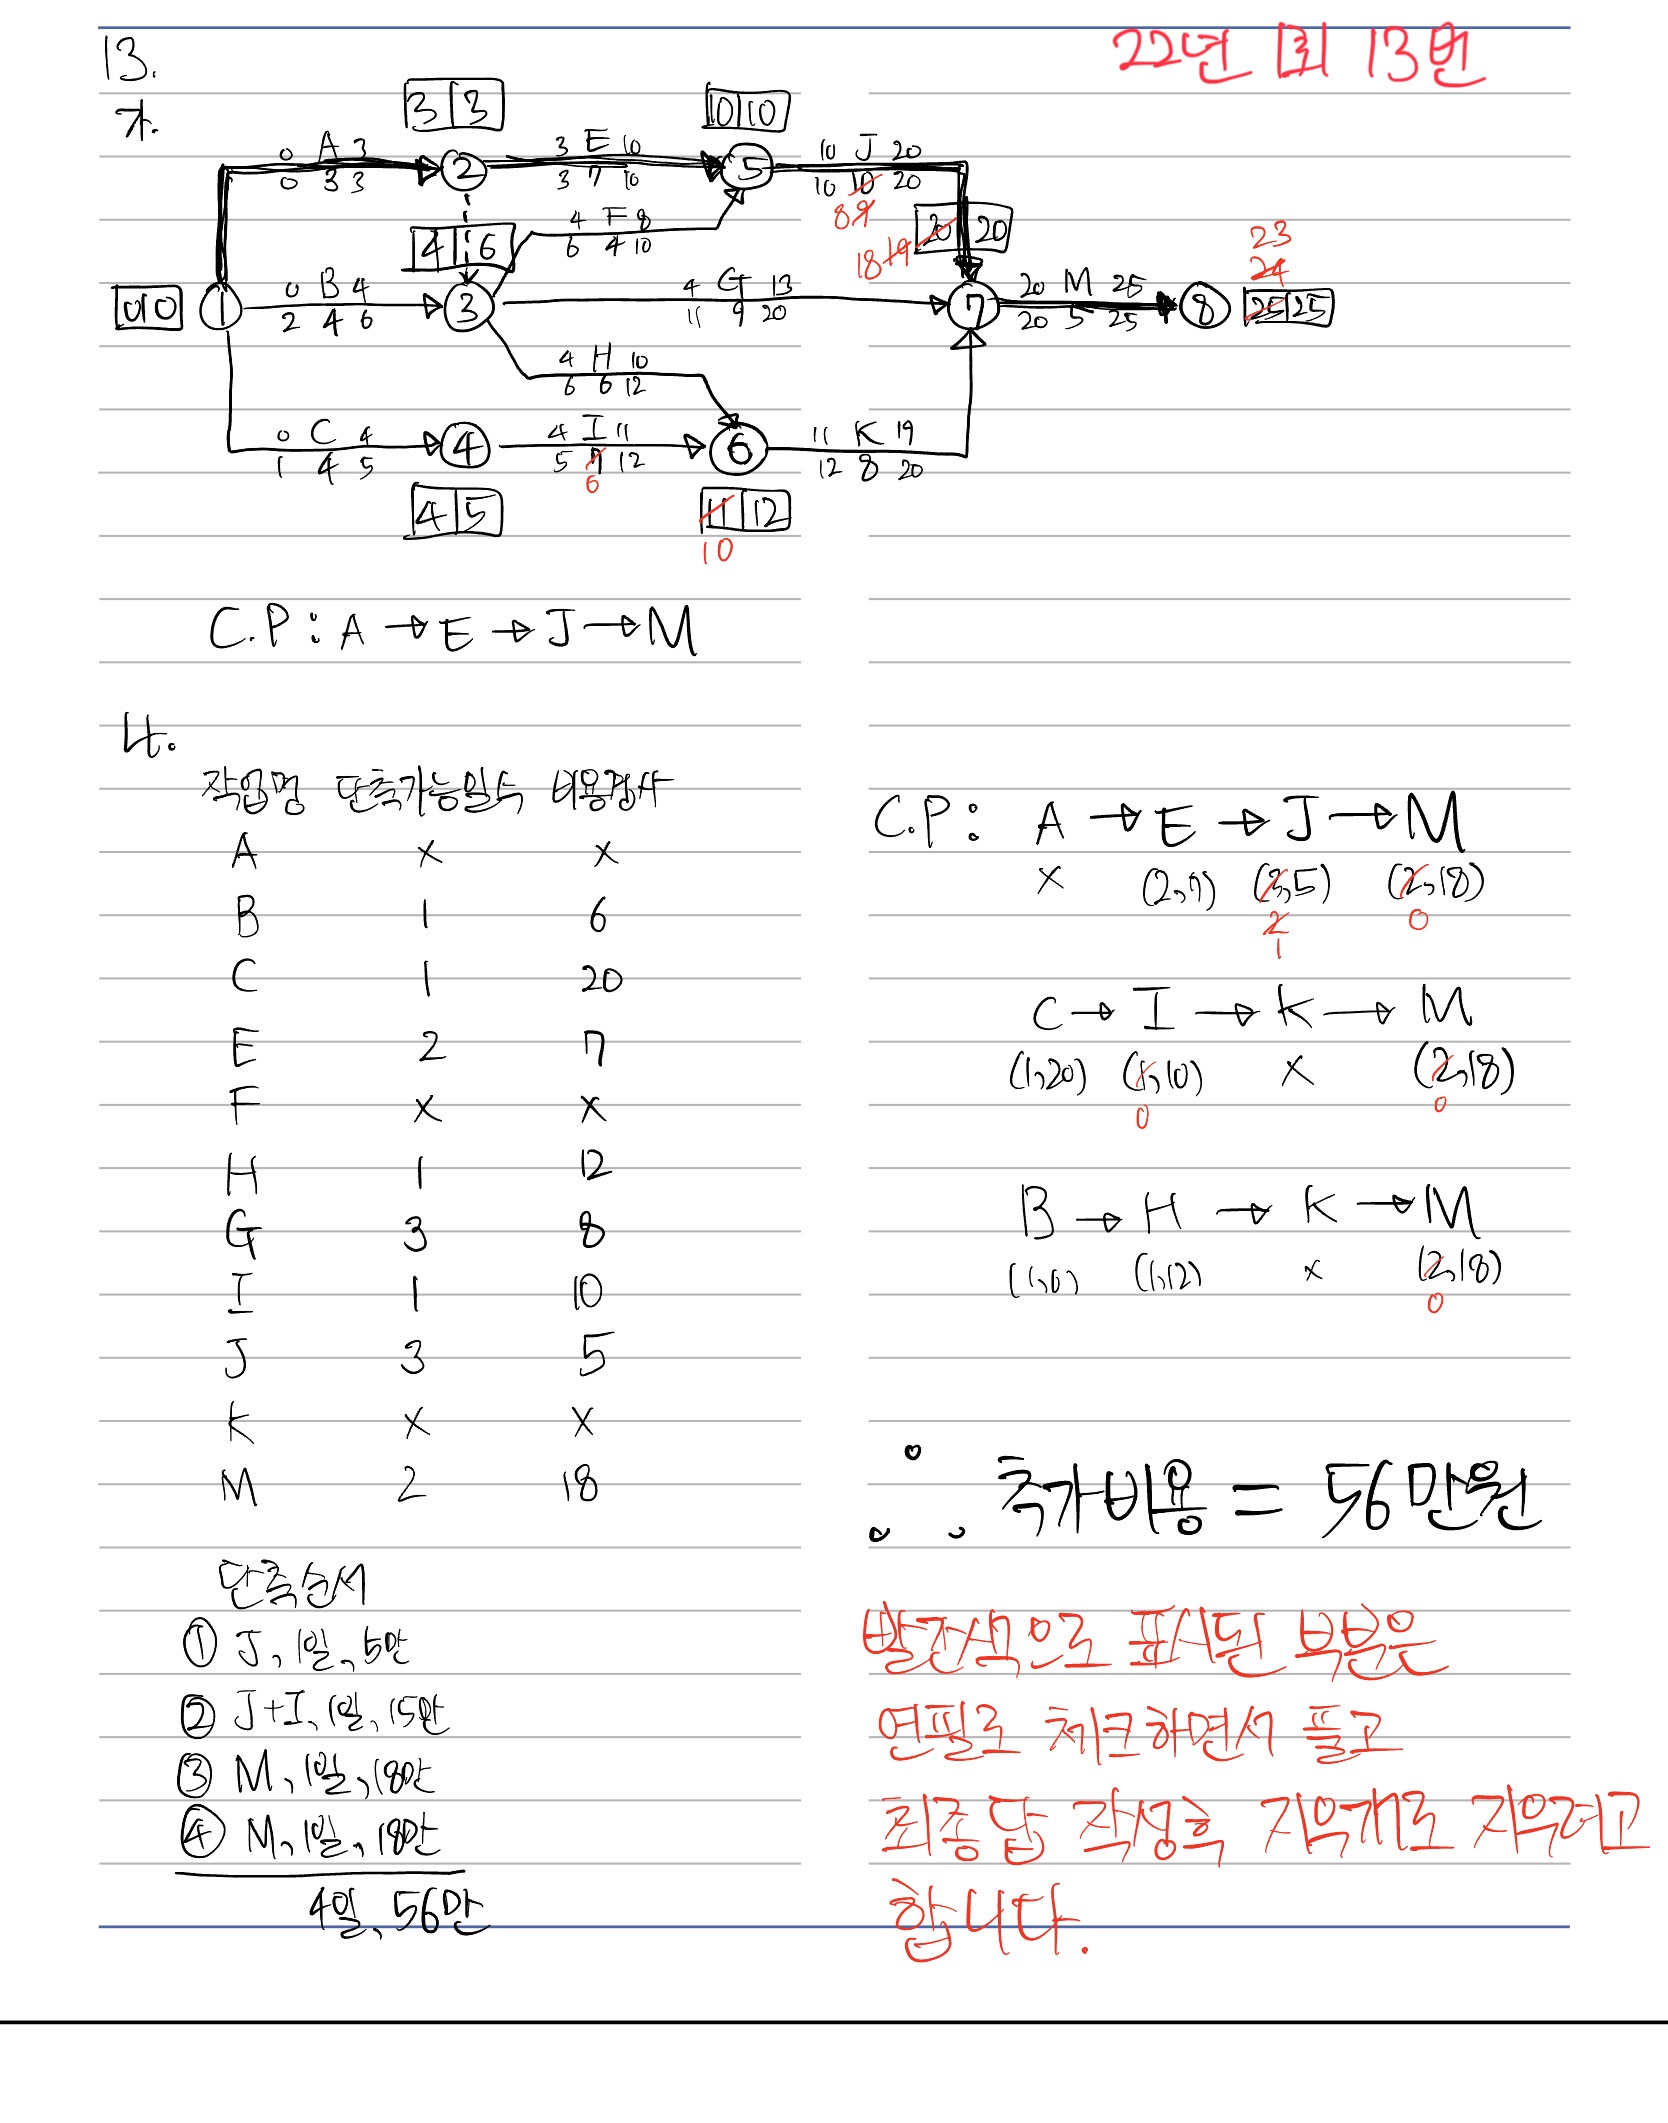 22년 1회 13번
13.
가.
3 3
10 10
0 A 3
0 3 3
2
3 E 10
3 7 10
5
10 J 20
10 10 20
8 9
4 6
4 F 8
6 4 10
18 19 20 20
23
24
0 0
1
0 B 4
2 4 6
3
4 G 13
11 9 20
7
20 M 25
20 5 25
8
25 25
4 H 10
6 6 12
0 C 4
1 4 5
4
4 I 11
5 7 12
6
6
11 K 19
12 8 20
4 5
11 12
10
C.P : A → E → J → M
나.
작업명 단축가능일수 비용경사
A × ×
B 1 6
C 1 20
E 2 7
F × ×
H 1 12
G 3 8
I 1 10
J 3 5
K × ×
M 2 18
단축순서
① J, 1일, 5만
② J+I, 1일, 15만
③ M, 1일, 18만
④ M, 1일, 18만
4일, 56만
C.P : A → E → J → M
× (2,7) (3,5) (2,18)
2 0
1
C → I → K → M
(1,20) (1,10) × (2,18)
0 0
B → H → K → M
(1,6) (1,12) × (2,18)
0
∴ 추가비용 = 56만원
빨간색으로 표시된 부분은
연필로 체크하면서 풀고
최종답 작성후 지우개로 지우려고
합니다.